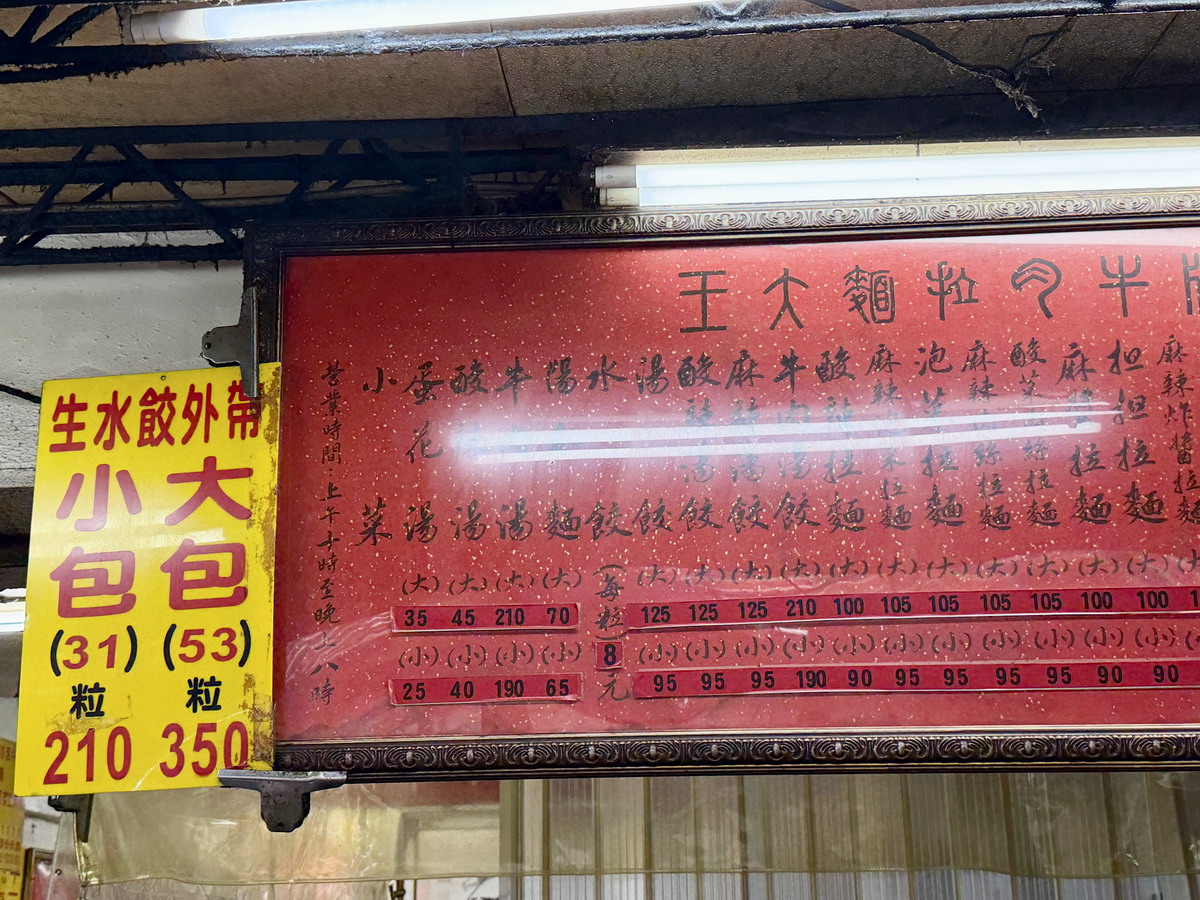 生水餃外帶
大包
(53)
粒
350
小包
(31)
粒
210
牛肉拉麵大王
麻辣炸醬拉麵
担担拉麵 (大) 100 (小) 90
麻醬拉麵 (大) 100 (小) 90
酸菜肉絲拉麵 (大) 105 (小) 95
麻辣肉絲拉麵 (大) 105 (小) 95
泡菜拉麵 (大) 105 (小) 95
麻辣菜拉麵 (大) 105 (小) 95
酸辣拉麵 (大) 100 (小) 90
牛肉湯餃 (大) 210 (小) 190
麻辣湯餃 (大) 125 (小) 95
酸辣湯餃 (大) 125 (小) 95
湯餃 (大) 125 (小) 95
水餃 (每粒) 8 元
陽麵 (大) 70 (小) 65
牛湯 (大) 210 (小) 190
酸湯 (大) 45 (小) 40
蛋花湯 (大) 35 (小) 25
小菜
營業時間:上午十時至晚上八時